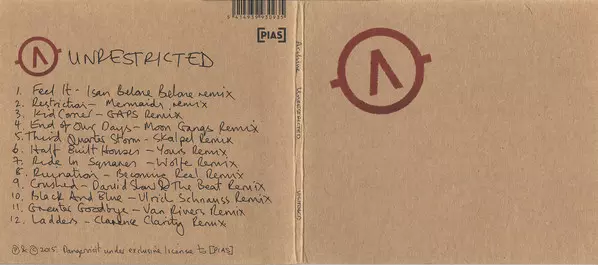 5 414939 930935
[PIAS]
UNRESTRICTED
1. Feel It - Isan Belone Belone remix
2. Restriction - Mermaids remix
3. Kid Corner - GAPS Remix
4 End of Our Days - Moon Gangs Remix
5. Third Quarter Storm - Skalpel Remix
6. Half Built Houses - Yours Remix
7. Ride In Squares - Wolfe Remix
8. Ruination - Becoming Real Remix
9 Crushed - David Starr & The Beat Remix
10. Black And Blue - Ulrich Schnauss Remix
11. Greater Goodbye - Van Rivers Remix
12. Ladders - Clarence Clarity Remix
℗ & © 2015. Dangervisit under exclusive license to [PIAS]
Archive Unrestricted